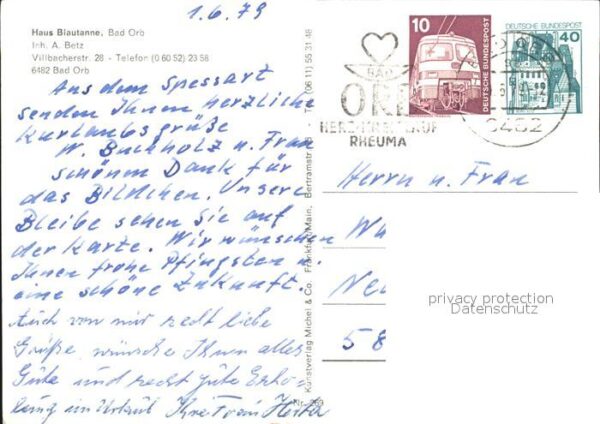 1.6.79
Haus Blautanne, Bad Orb
Inh. A. Betz
Villbacherstr. 28 - Telefon (0 60 52) 23 58
6482 Bad Orb
Aus dem Spessart
senden Ihnen herzliche
Kurlaubsgrüße
W. Buchholz u. Frau
schönen Dank für
das Bildchen. Unsere
Bleibe sehen Sie auf
der Karte. Wir wünschen
Ihnen frohe Pfingsten u.
eine schöne Zukunft.
Auch von mir recht liebe
Grüße, wünsche Ihnen alles
Gute und recht gute Erho-
lung im Urlaub Ihre Frau Herta
Kunstverlag Michel & Co. Frankfurt/Main, Bertramstr. Tel. (06 11) 55 31 48
Nr. 269
10
DEUTSCHE BUNDESPOST
DEUTSCHE BUNDESPOST
40
BAD
ORB
RHEUMA
6482
Herrn u. Frau
58
privacy protection
Datenschutz